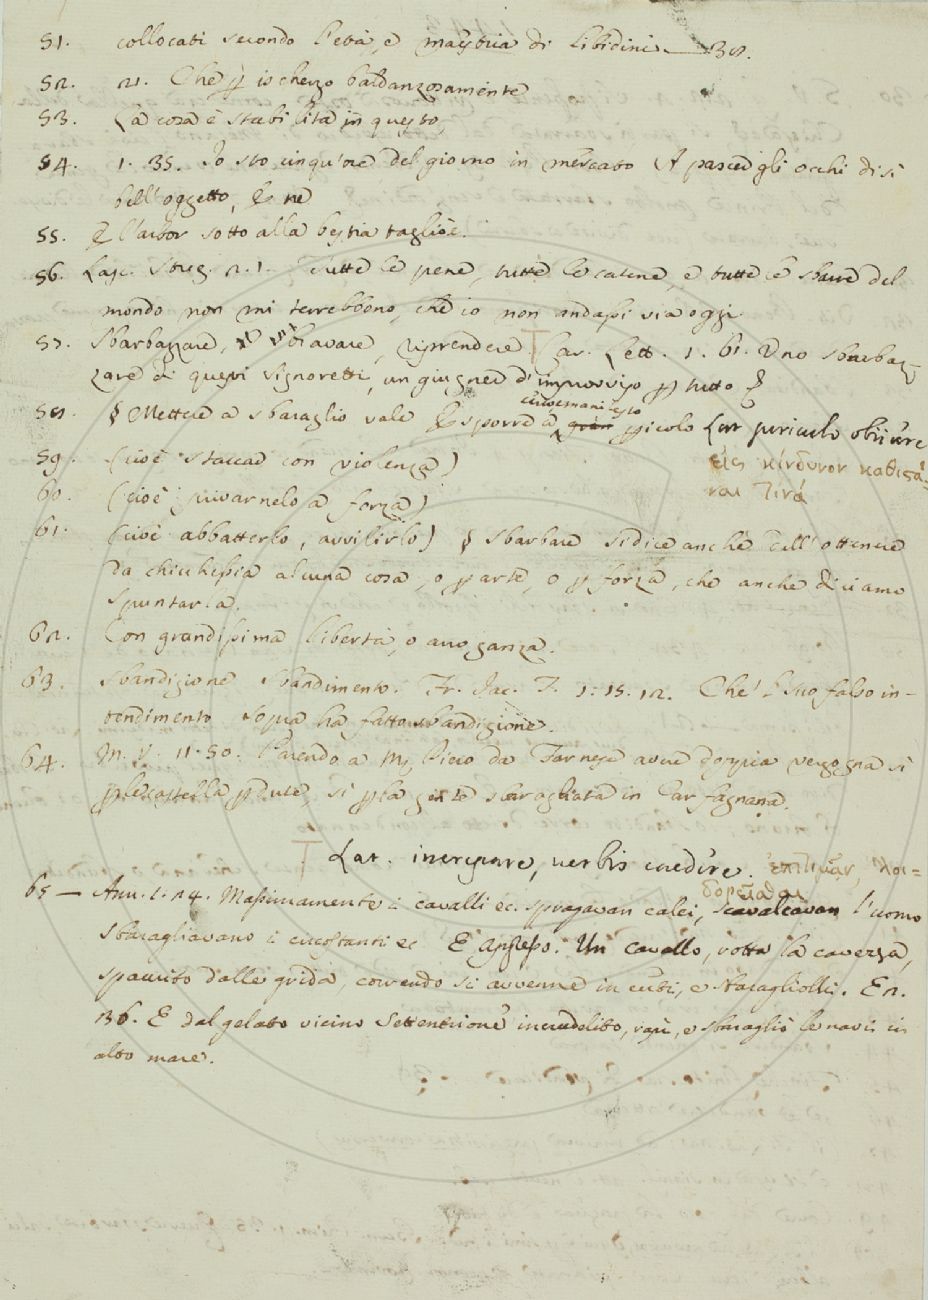 51. collocati secondo l'età, e maestria di libidini — 38.
52. 21. Che p ischerzo baldanzosamente
53. La cosa è stabilita in questo,
54. 1. 35. Io sto cinqu'ore del giorno in mercato A pascer gli occhi di sì
bell'oggetto, & ne
55. & l'arbor sotto alla bestia tagliòe.
56. Lasc. Streg. 2. 1. Tutte le pene, tutte le catene, e tutte le sbarre del
mondo non mi terrebbono, che io non andassi via oggi
57. Sbarbazzare, riprendere Car. Lett. 1. 61. Uno sbarbaz-
zare di questi signoretti, un giugner d'improvviso p tutto &
58. § Mettere a sbaraglio vale Esporre a pericolo Lat periculo obiicere
εἰς κίνδυνον καθιςά-
59. (cioè staccar con violenza)
ναι τινά
60. (cioè privarnelo a forza)
61. (cioè abbatterlo, avvilirlo) § Sbarbare si dice anche dell'ottenere
da chicchessia alcuna cosa, o p arte, o p forza, che anche diciamo
spuntarla.
62. Con grandissima libertà, o arroganza.
63. Sbandigione Sbandimento. Fr. Jac. T. 1. 15. 12. Che'l suo falso in-
tendimento sopra ha fatto sbandigione.
64. M. V. 11. 50. Parendo a Mess. Piero da Farnese avere doppia vergogna sì
p le castella pdute, sì p la gente sbaragliata in Garfagnana.
Lat. increpare, verbis caedere. ἐπιτιμᾷν, λοι-
δορεῖσθαι
65 — Ann. 1. 14. Massimamente i cavalli ec. sprangavan calci, scavalcavan l'uomo
sbaragliavano i circostanti ec E appresso. Un cavallo, rotta la cavezza,
spaurito dalle grida, correndo si avvenne in certi, e sbaragliolli. E 2.
36. E dal gelato vicino Settentrione incrudelito, rapì, e sbaragliò le navi in
alto mare.